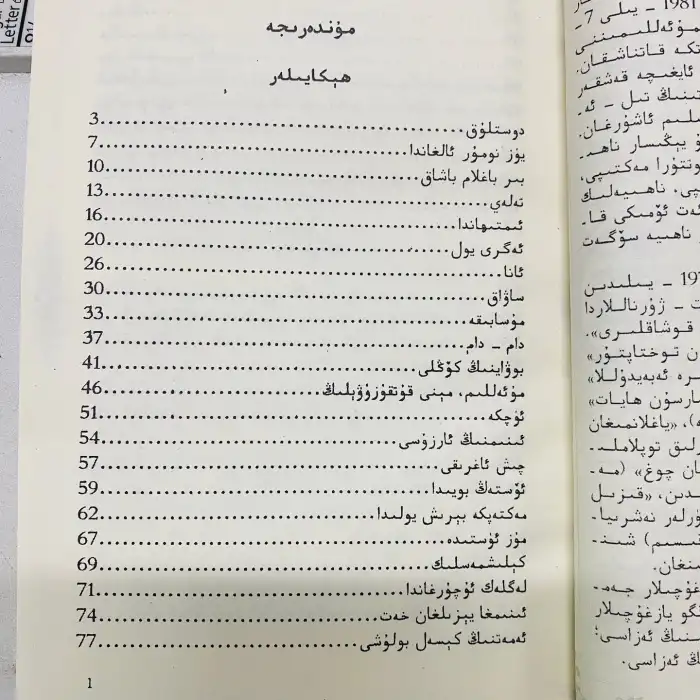 Letter
مۇندەرىجە
ھېكايىلەر
دوستلۇق........................................3
يۈز نومۇر ئالغاندا........................................7
بىر باغلام باشاق........................................10
تەلەي........................................13
ئىمتىھاندا........................................16
ئەگرى يول........................................20
ئانا........................................26
ساۋاق........................................30
مۇسابىقە........................................33
دام - دام........................................37
بوۋاينىڭ كۆڭلى........................................41
مۇئەللىم، مېنى قۇتقۇزۇۋېلىڭ........................................46
ئۆچكە........................................51
ئىنىمنىڭ ئارزۇسى........................................54
چىش ئاغرىقى........................................57
ئۆستەڭ بويىدا........................................59
مەكتەپكە بېرىش يولىدا........................................62
مۇز ئۈستىدە........................................67
كېلىشمەسلىك........................................69
لەگلەك ئۇچۇرغاندا........................................71
ئىنىمغا يېزىلغان خەت........................................74
ئەمەتنىڭ كېسەل بولۇشى........................................77
1
1981 - يىلى 7 -
مۇئەللىمىنى
تكە قاتناشقان.
ئايغىچە قەشقەر
تىنىڭ تىل - ئە
ىلىم ئاشۇرغان.
ۇ يېڭىسار ناھى-
وتتۇرا مەكتىپى،
پى، ناھىيەلىك
ئەت ئۆمىكى قا-
ناھىيە سۆگەت
- يىلىدىن
ت - ژۇرناللاردا
قوشاقلىرى».
ن توختاپتۇر»
رە ئەبەيدۇللا»
ارسۇن ھايات»
ە)، «ياغلانمىغان
رلىق توپلاملى-
ان چوغ» (مە-
ىدىن، «قىزىل
ۈرلەر نەشرىيا-
قىسىم) شىنـ-
ىنغان.
غۇچىلار جەم-
ڭگو يازغۇچىلار
ىنىڭ ئەزاسى؛
ڭ ئەزاسى.